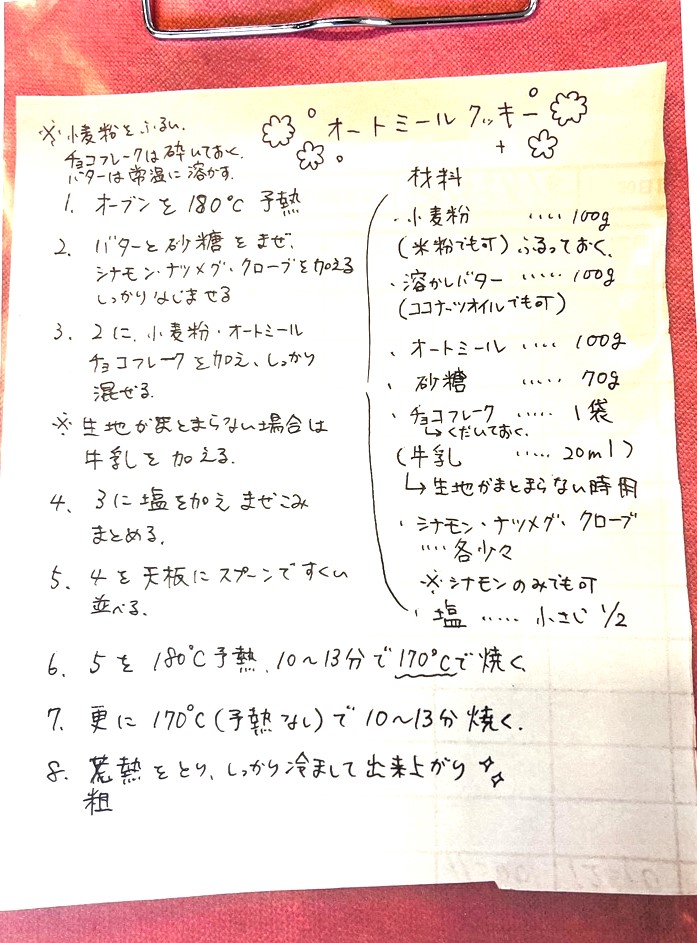 オートミールクッキー
※ 小麦粉をふるい、
チョコフレークは砕いておく。
バターは常温に溶かす。
1. オーブンを180℃ 予熱
2. バターと砂糖をまぜ、
シナモン・ナツメグ・クローブを加える
しっかりなじませる
3. 2に、小麦粉・オートミール
チョコフレークを加え、しっかり
混ぜる。
※ 生地がまとまらない場合は
牛乳を加える。
4. 3に塩を加えまぜこみ
まとめる。
5. 4を天板にスプーンですくい
並べる。
材料
・小麦粉 ‥‥ 100g
(米粉でも可) ふるっておく。
・溶かしバター ‥‥‥ 100g
(ココナッツオイルでも可)
・オートミール ‥‥ 100g
・砂糖 ‥‥‥ 70g
・チョコフレーク ‥‥‥ 1袋
↳くだいておく。
(牛乳 ‥‥‥ 20ml)
↳生地がまとまらない時用
・シナモン・ナツメグ・クローブ
‥‥ 各少々
※シナモンのみでも可
・塩 ‥‥‥ 小さじ 1/2
6. 5を180℃予熱、10〜13分で170℃で焼く、
7. 更に170℃(予熱なし)で10〜13分焼く。
8. 荒熱をとり、しっかり冷まして出来上がり
粗